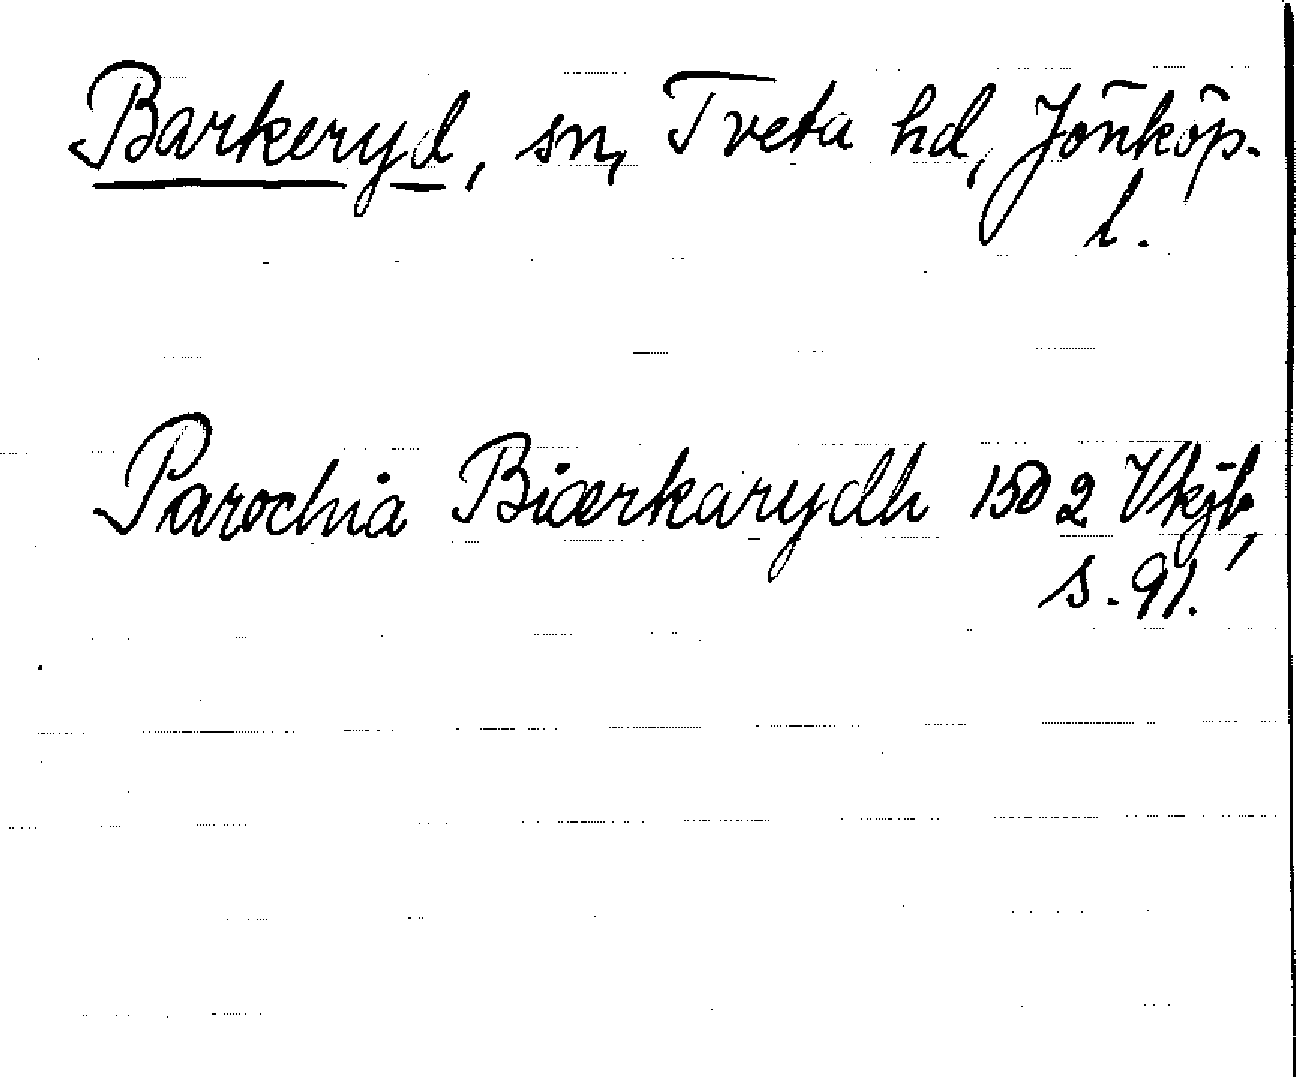 Barkeryd, sn, Tveta hd, Jönköp.
l.
Parochia Biærkarydh 1502 Vkjb,
s. 91.